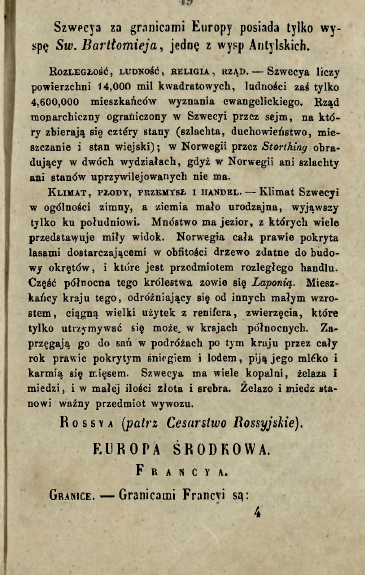 49
Szwecya za granicami Europy posiada tylko wy-
spę Sw. Bartłomieja, jednę z wysp Antylskich.
Rozległość, ludność, religia, rząd. — Szwecya liczy
powierzchni 14,000 mil kwadratowych, ludności zaś tylko
4,600,000 mieszkańców wyznania ewangelickiego. Rząd
monarchiczny ograniczony w Szwecyi przez sejm, na któ-
ry zbierają się cztéry stany (szlachta, duchowieństwo, mie-
szczanie i stan wiejski); w Norwegii przez Storthing obra-
dujący w dwóch wydziałach, gdyż w Norwegii ani szlachty
ani stanów uprzywilejowanych nie ma.
Klimat, płody, przemysł i handel. — Klimat Szwecyi
w ogólności zimny, a ziemia mało urodzajna, wyjąwszy
tylko ku południowi. Mnóstwo ma jezior, z których wiele
przedstawuje miły widok. Norwegia cała prawie pokryta
lasami dostarczającemi w obfitości drzewo zdatne do budo-
wy okrętów, i które jest przedmiotem rozległego handlu.
Część północna tego królestwa zowie się Laponią. Miesz-
kańcy kraju tego, odróżniający się od innych małym wzro-
stem, ciągną wielki użytek z renifera, zwierzęcia, które
tylko utrzymywać się może w krajach północnych. Za-
przęgają go do sań w podróżach po tym kraju przez cały
rok prawie pokrytym śniegiem i lodem, piją jego mléko i
karmią się mięsem. Szwecya ma wiele kopalni, żelaza i
miedzi, i w małej ilości złota i srebra. Żelazo i miedz sta-
nowi ważny przedmiot wywozu.
Rossya (patrz Cesarstwo Rossyjskie).
EUROPA ŚRODKOWA.
Francya.
Granice. — Granicami Francyi są:
4